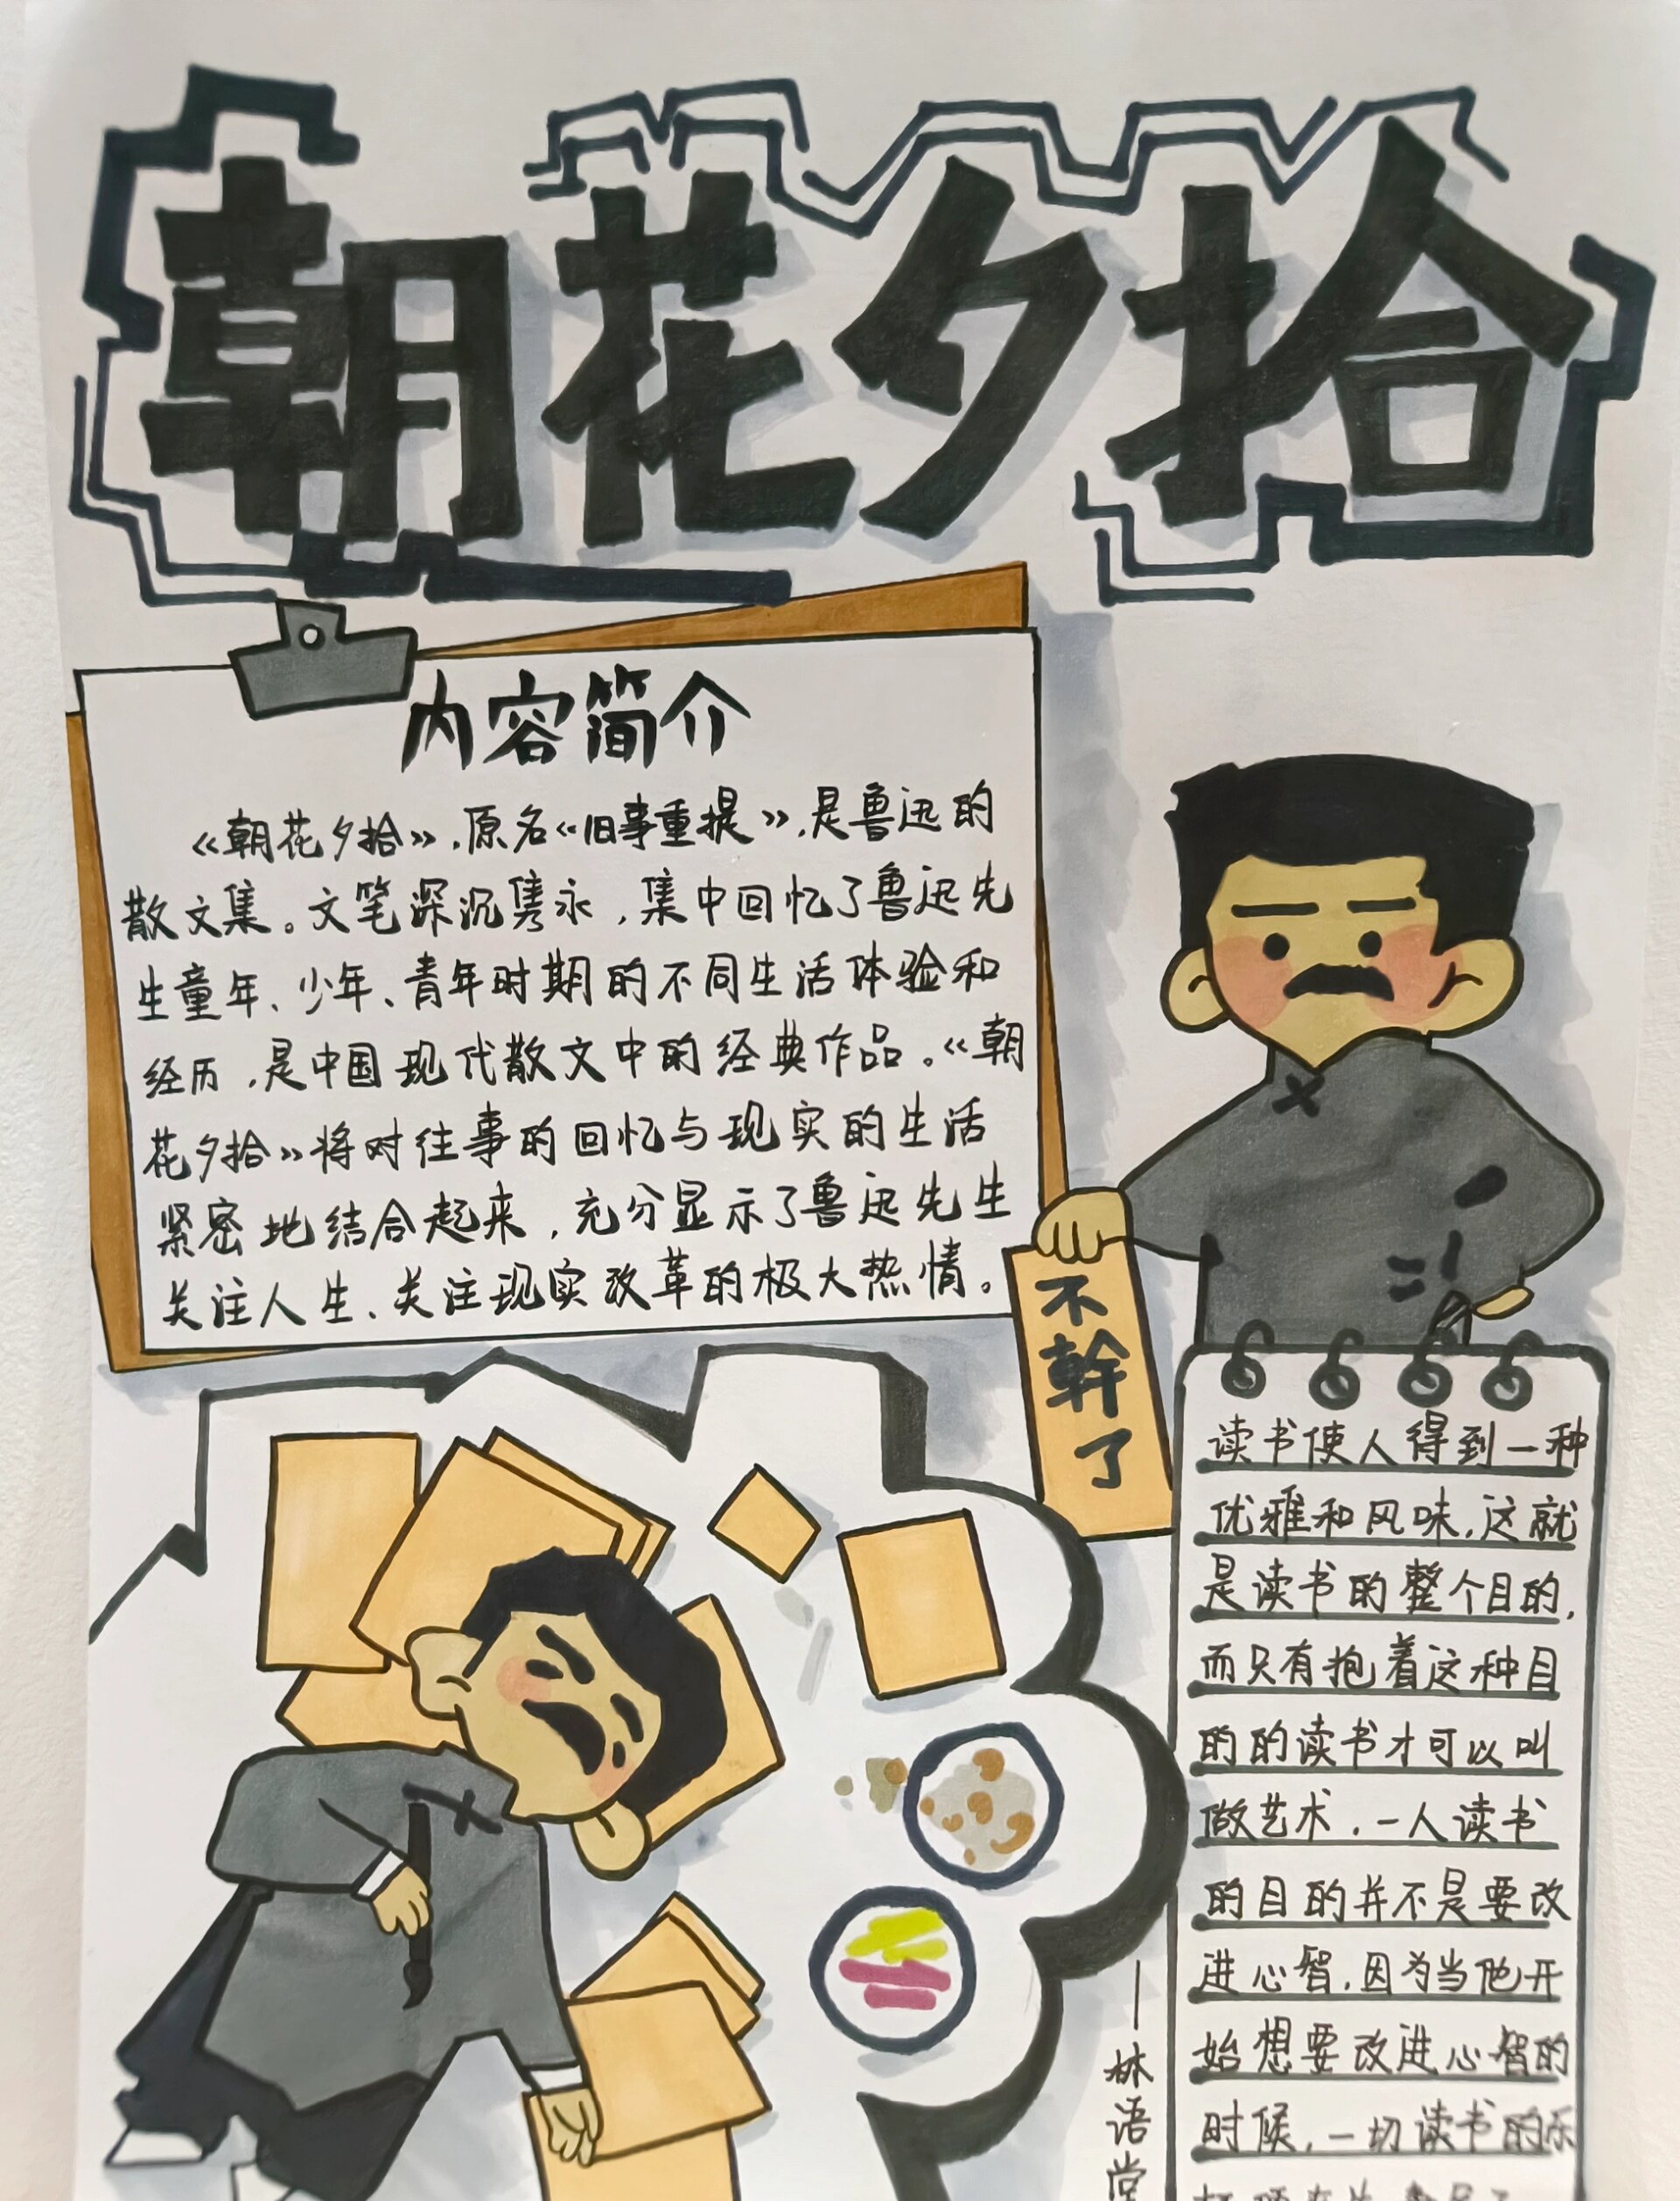 朝花夕拾
内容简介
《朝花夕拾》,原名《旧事重提》,是鲁迅的
散文集。文笔深沉隽永,集中回忆了鲁迅先
生童年、少年、青年时期的不同生活体验和
经历,是中国现代散文中的经典作品。《朝
花夕拾》将对往事的回忆与现实的生活
紧密地结合起来,充分显示了鲁迅先生
关注人生、关注现实改革的极大热情。
不幹了
读书使人得到一种
优雅和风味,这就
是读书的整个目的,
而只有抱着这种目
的的读书才可以叫
做艺术,一人读书
的目的并不是要改
进心智,因为当他开
始想要改进心智的
时候,一切读书的乐
——林语堂